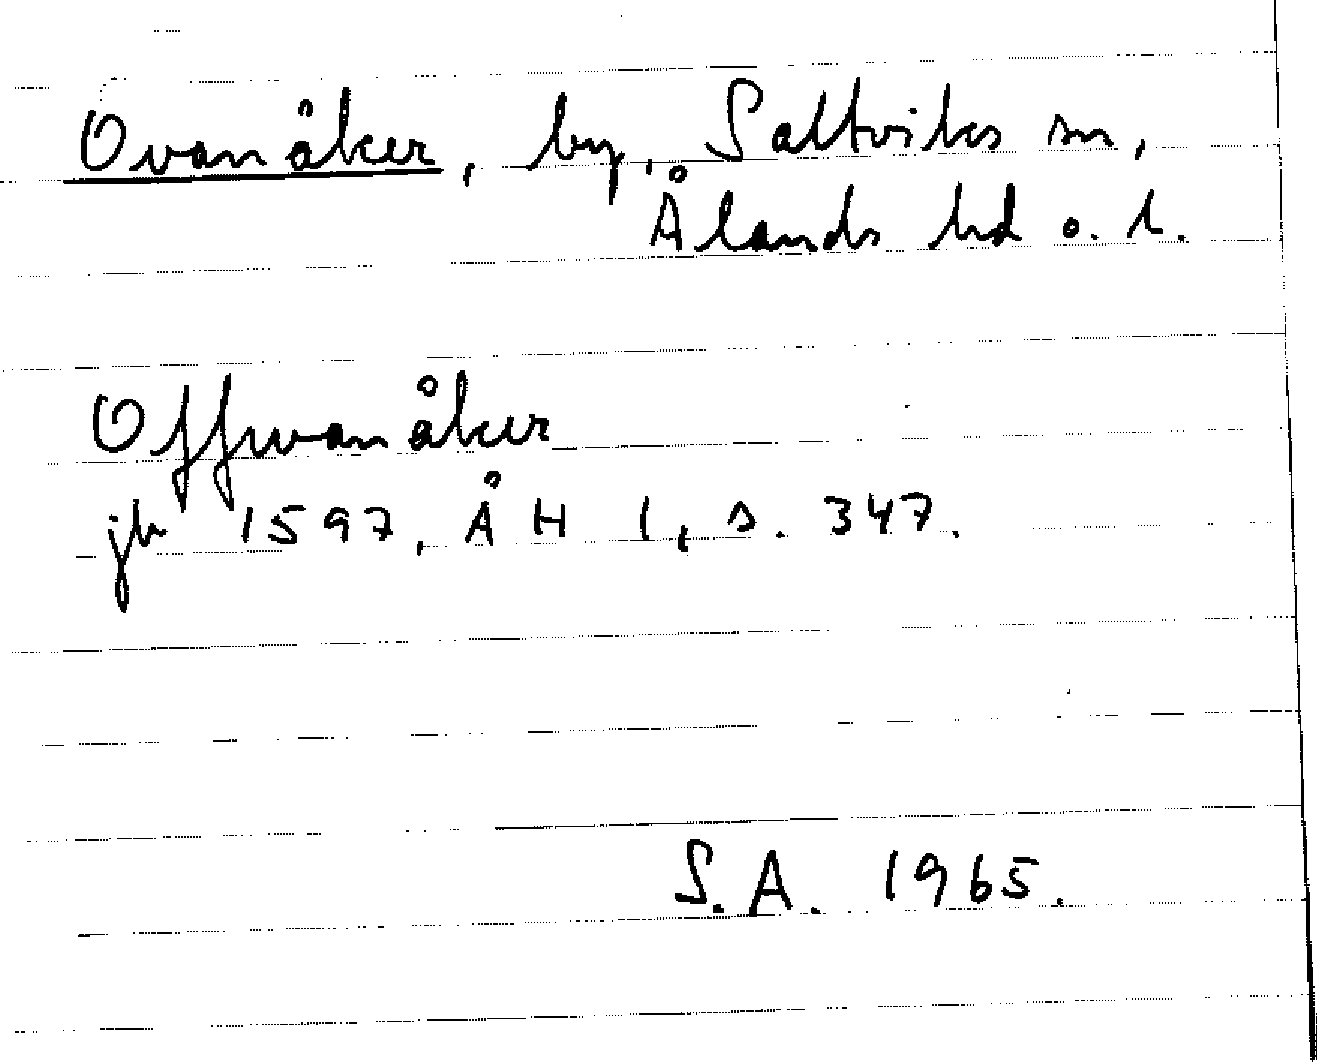 Ovanåker, by, Saltviks sn,
Ålands hd o. l.
Offwanåker
jb 1597, ÅH I, s. 347.
S.A. 1965.